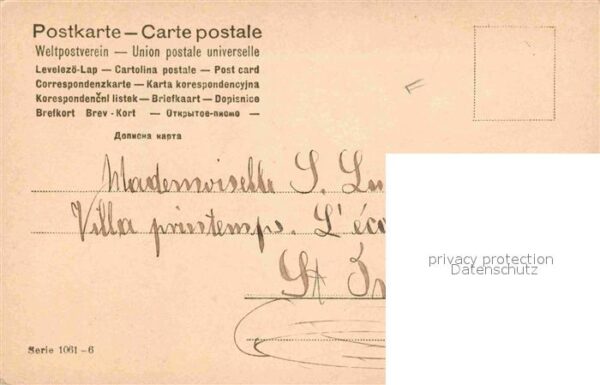 Postkarte – Carte postale
Weltpostverein — Union postale universelle
Levelező-Lap — Cartolina postale — Post card
Correspondenzkarte — Karta korespondencyjna
Korespondenční listek — Briefkaart — Dopisnice
Brefkort Brev-Kort — Открытое-письмо —
Дописна карта
Mademoiselle S.
Villa printemps. L'
St
privacy protection
Datenschutz
Serie 1061 – 6